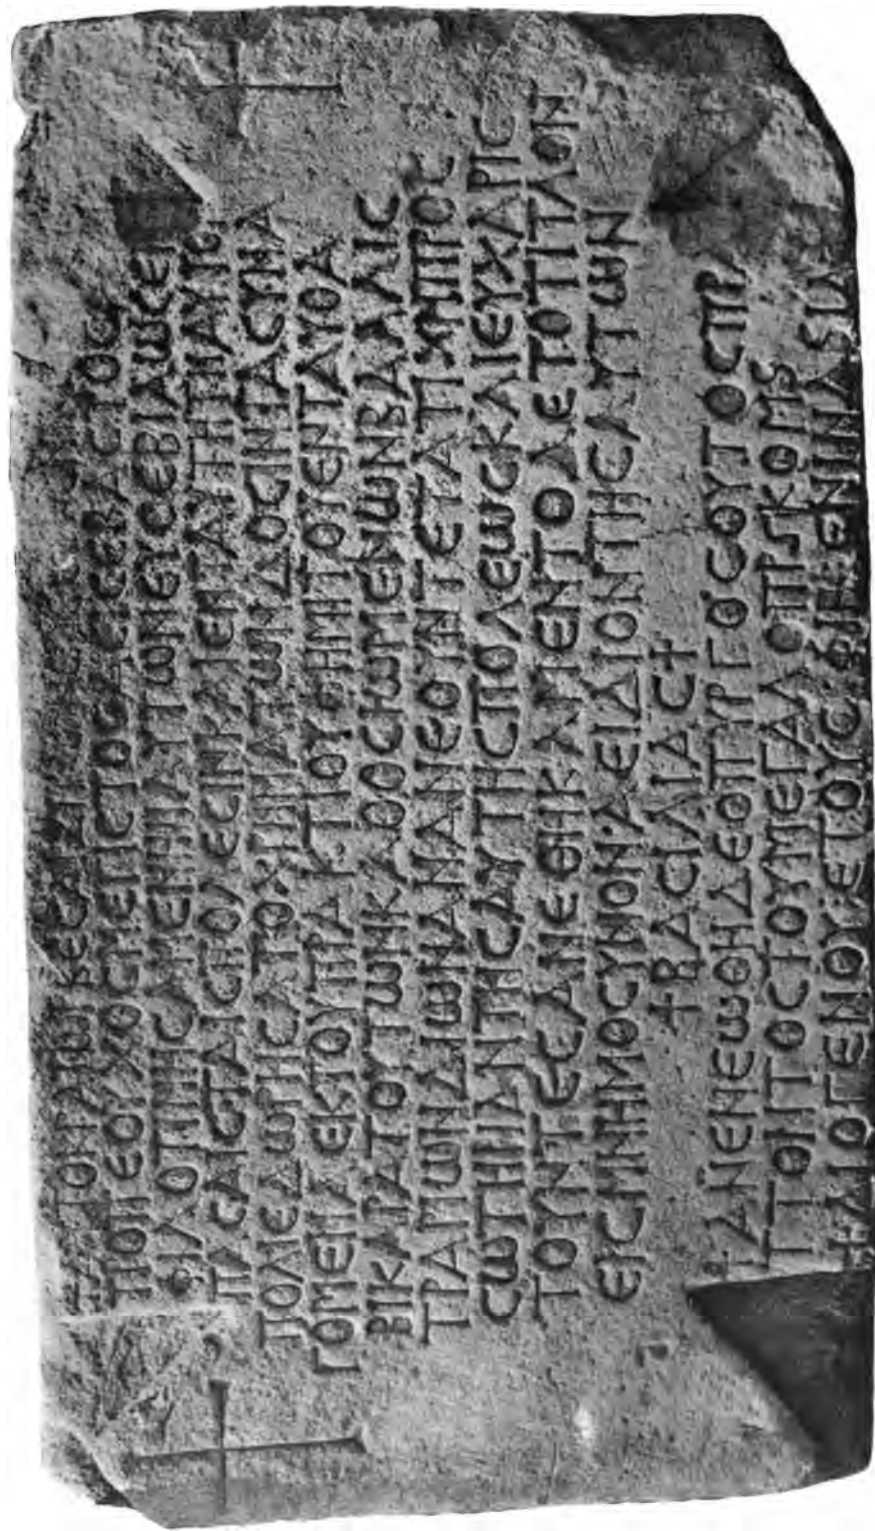 ΑΥΤΟΚΡΑΤΩΡ ΚΕϹΑΡ
ΤΡΟΠΕΟΥΧΟϹ ΜΕΓΙϹΤΟϹ ΑΕΙϹΕΒΑϹΤΟϹ
ΦΙΛΟΤΙΜΗϹΑΜΕΝΗ Η ΑΥΤΩΝ ΕΥϹΕΒΙΑ ΩϹ ΕΝ
ΠΑϹΑΙϹ ΤΑΙϹ ΠΟΛΕϹΙΝ ΚΑΙ ΕΝ ΤΑΥΤΗ ΤΗ ΑΥΤΟΥ
ΠΟΛΙ ΕΔΩΡΗϹΑΤΟ ΧΡΗΜΑΤΩΝ ΔΟϹΙΝ ΤΑ ϹΥΝΑ
ΓΟΜΕΝΑ ΕΚ ΤΟΥ ΠΡΑΚΤΙΟΥ ΦΗΜΙ ΤΟΥ ΕΝΤΑΥΘΑ
ΒΙΚΑΡΑΤΟΥ ΤΩΝ ΚΑΘΟϹΗΩΜΕΝΩΝ ΒΑΛΛΙϹ
ΤΡΑΡΙΩΝ ΔΙ ΩΝ ΑΝΑΝΕΟΥΝΤΕ ΤΑ ΤΙΧΗ ΠΡΟϹ
ϹΩΤΗΡΙΑΝ ΤΗϹ ΑΥΤΗϹ ΠΟΛΕΩϹ ΚΑΙ ΕΥΧΑΡΙϹ
ΤΟΥΝΤΕϹ ΑΝΕΘΗΚΑΜΕΝ ΤΟΔΕ ΤΟ ΤΙΤΛΟΝ
ΕΙϹ ΜΝΗΜΟϹΥΝΟΝ ΑΕΙΔΙΟΝ ΤΗϹ ΑΥΤΩΝ
† ΒΑϹΙΛΙΑϹ †
† ΑΝΕΝΕΩΘΗ ΔΕ Ο ΠΥΡΓΟϹ ΟΥΤΟϹ ΠΡΑ
ΤΤΟΝΤΟϹ ΤΟΥ ΜΕΓΑΛΟΠΡϚ ΚΟΜϚ
ΔΙΟΓΕΝΟΥ ΕΤΟΥϹ ΦΙΒ ΕΝ ΙΝΔϚ ΙΑ